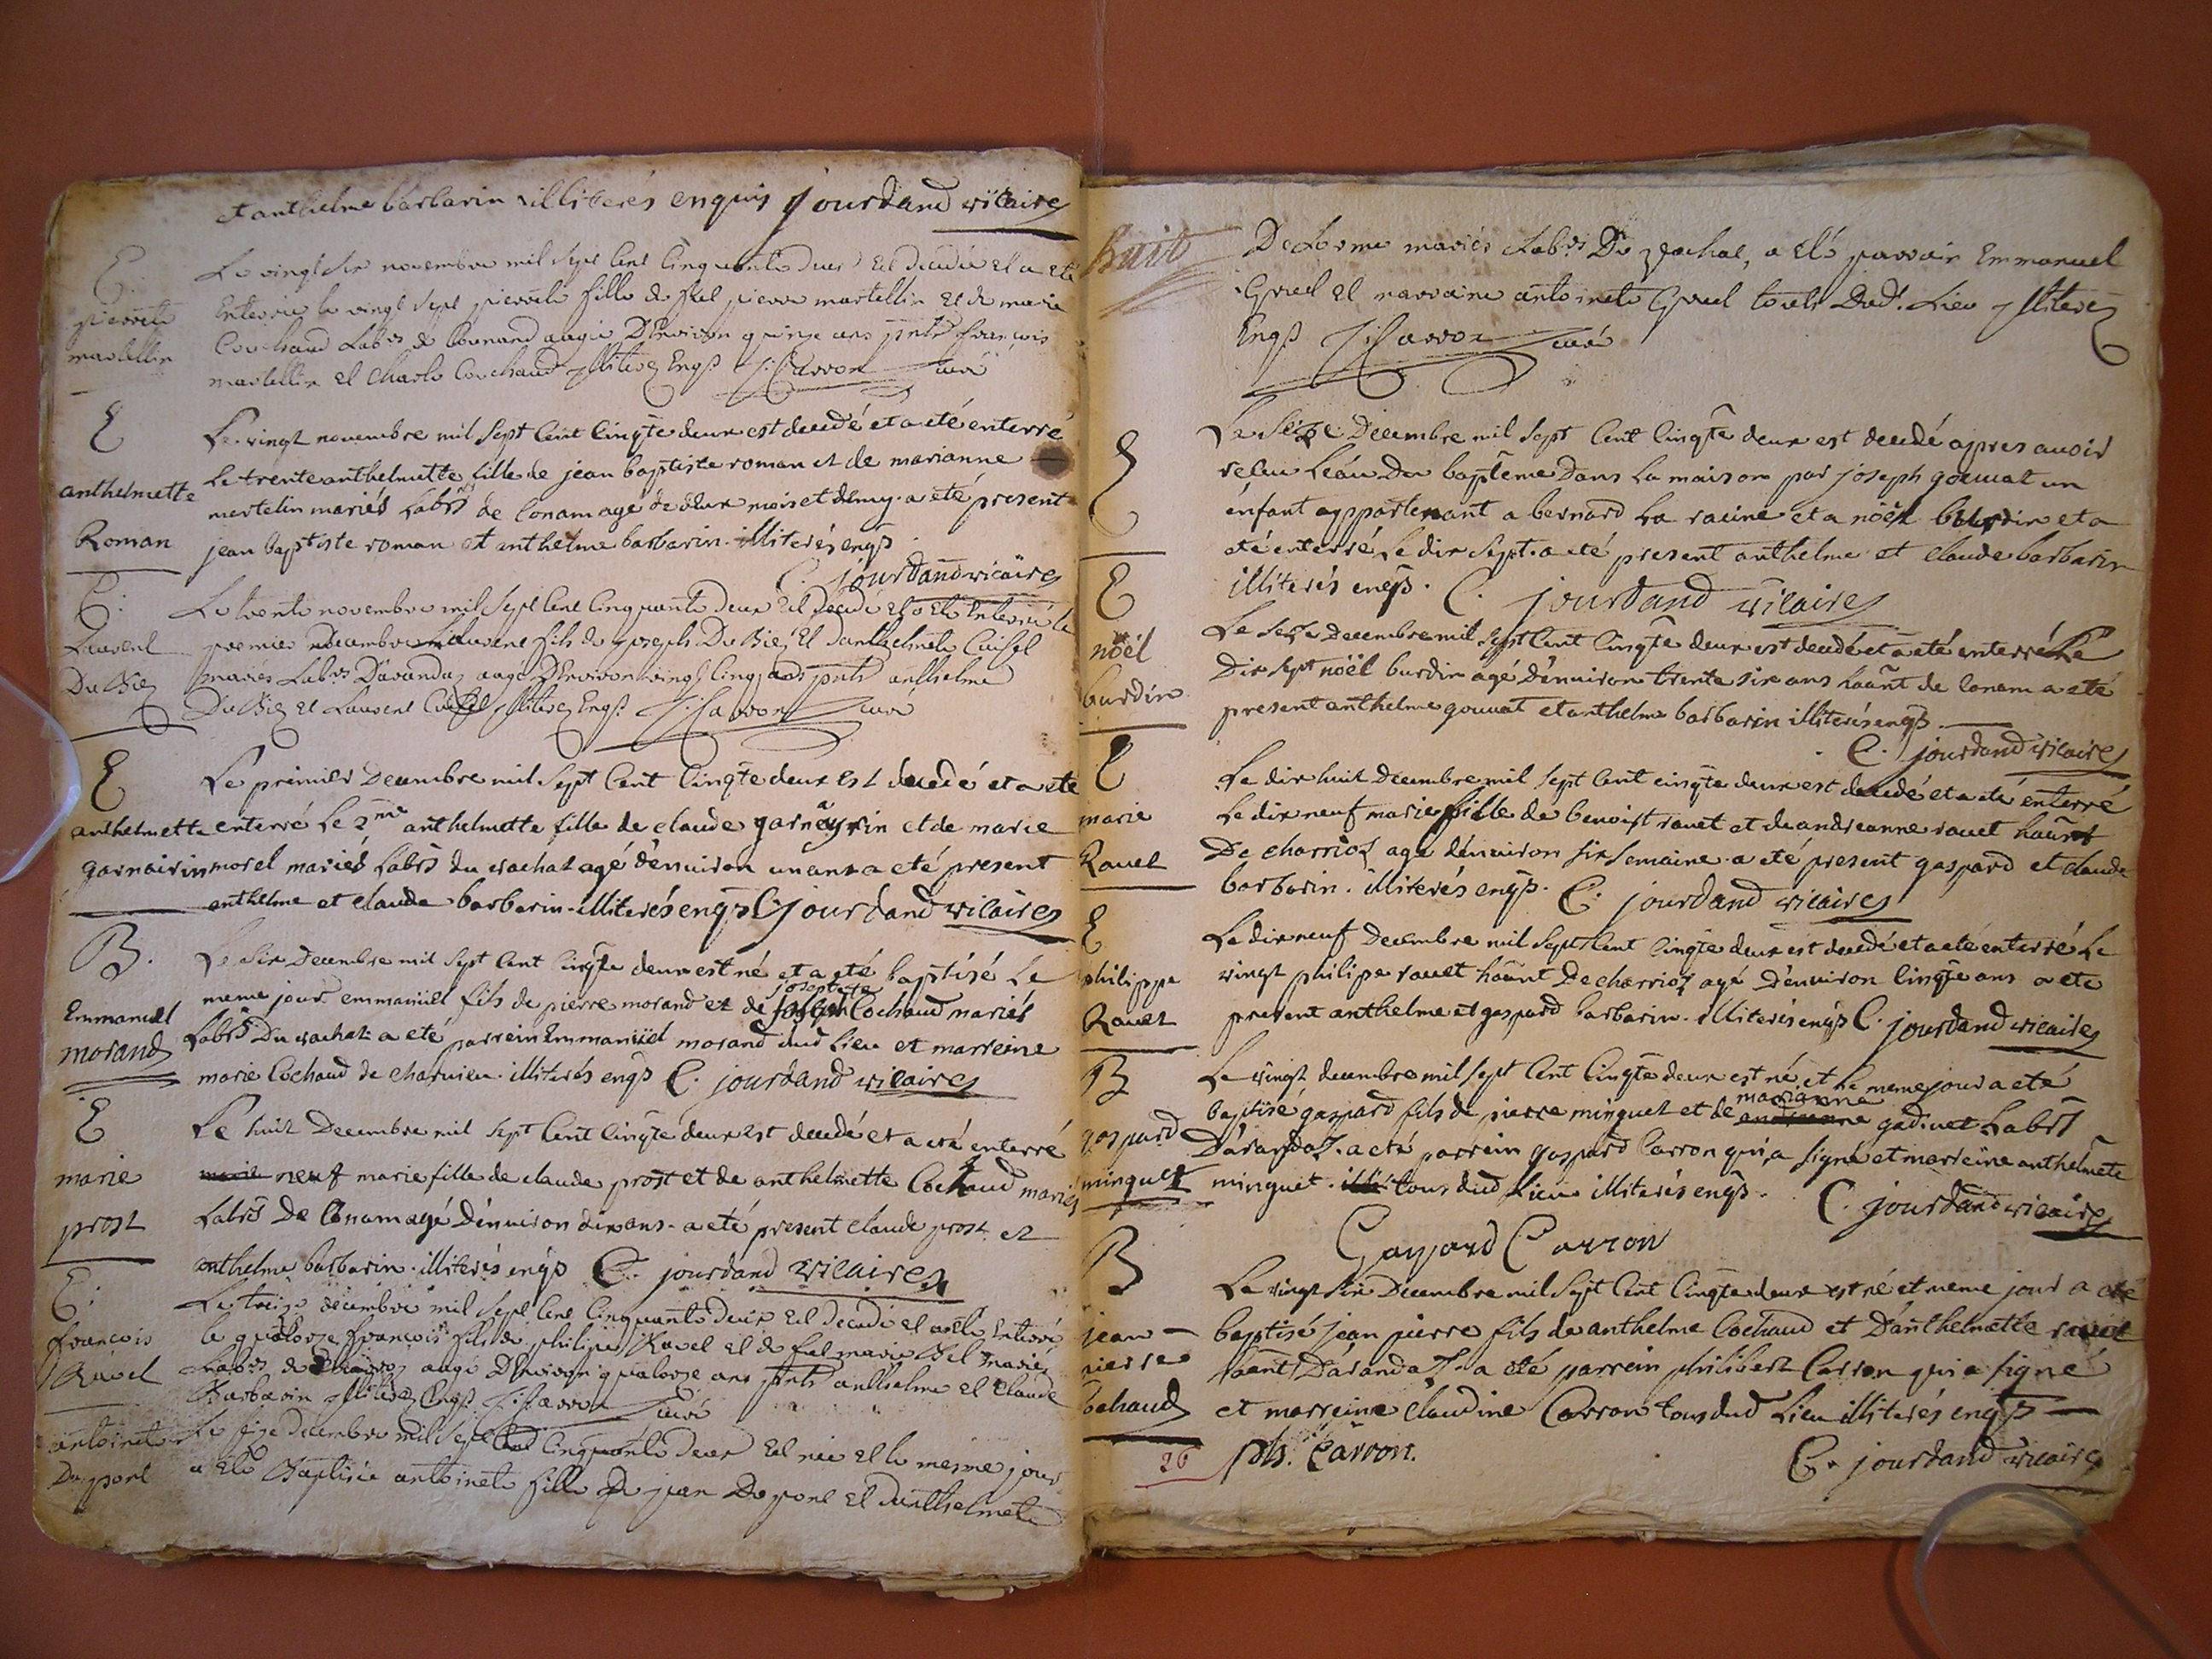 et anthelme barbarin illiterés enquis jourdand vicaire
E.
pierrete
martellin
Le vingt six novembre mil sept cent cinquante deux est decedée et a eté
Enterrée le vingt sept pierrete fille de feu pierre martellin et de marie
Cochaud Labrs de Counand augée D'Environ quinze ans pnts françois
martellin et Charle Cochaud Illiterez Enqs Carron curé
E
anthelmette
Roman
Le vingt novembre mil sept Cent Cinqte deux est decedé et a eté enterré
Le trente anthelmette fille de jean baptiste roman et de marianne
mertelin mariés Labrs de Conam agé de deux mois et demy a eté present
jean baptiste roman et anthelme barbarin illiterés enqs
C. jourdand vicaire
E.
Laurent
Du Biez
Le trente novembre mil sept cent cinquante deux est decedé et a eté Enterré le
premier decembre Laurent fils de joseph Du Biez et D'anthelmete Cuisel
mariés Labrs D'avandaz augé D'Environ vingt cinq ans pnts anthelme
Du Biez et Laurent Cuisel Illiterez Enqs Carron curé
E
anthelmette
garnairin
Le premier Decembre mil Sept Cent Cinqte deux est decedé et a ete
enterré Le 2me anthelmette fille de claude garnayrin et de marie
morel mariés Labrs du vachat agé d'environ un ans a eté present
anthelme et claude barbarin illiterés enqs C. jourdand vicaire
B.
Emmanuel
morand
Le Six Decembre mil Sept Cent Cinqte deux est né et a eté baptisé Le
meme jour emmanüel fils de pierre morand et de josepte Cochaud mariés
Labrs Du vachat a eté parrein Emmanüel morand dud Lieu et marreine
marie Cochaud de charvieu illiterés enqs C. jourdand vicaire
E
marie
prost
Le huit Decembre mil Sept Cent Cinqte deux est decedé et a eté enterré
marie neuf marie fille de claude prost et de anthelmette Cochaud mariés
Labrs De Conam agé D'environ dix ans a eté present claude prost et
anthelme barbarin illiterés enqs C. jourdand vicaire
E.
francois
Ravel
Le treize decembre mil sept cent cinquante deux est decedé et a eté Enterré
le quatorze francois fils de philipe Ravel et de feu marie Bel mariés
Labrs de augé D'Environ quatorze ans pnts anthelme et Claude
Barbarin Illiterez Enqs Carron curé
antoinete
Du pont
Le seize decembre mil sept cent cinquante deux est née et le mesme jour
a eté Baptisée antoinete fille De jean Du pont et d'anthelmete
huit
Delorme mariés Labrs Du vachat, a eté parrain Emmanuel
Gruel et marraine antoinete Gruel touts Dud. Lieu Illiterez
Enqs Carron curé
E
Le Seize Decembre mil Sept Cent Cinqte deux est decedé apres avoir
receu Leau Du baptême Dans La maison par joseph gouvat un
énfant appartenant a bernard La racine et a nöel burdin et a
eté enterré Le dix Sept a eté present anthelme et claude barbarin
illiterés enqs. C. jourdand vicaire
E
nöel
burdin
Le Seze Decembre mil Sept Cent Cinqte deux est decedé et a eté enterré Le
Dix Sept nöel burdin agé D'environ trente six ans haant de Conam a eté
present anthelme gouvat et anthelme barbarin illiterés enqs.
C. jourdand vicaire
E
marie
Ravet
Le dix huit Decembre mil Sept Cent cinqte deux est decedé et a eté enterré
Le dix neuf marie fille de benoist ravet et de andreanne ravet haant
De charrioz agé d'environ six Semaine a eté present gaspard et claude
barbarin. illiterés enqs. C. jourdand vicaire
E
philippe
Ravet
Le dix neuf Decembre mil Sept Cent Cinqte deux est decedé et a eté enterré Le
vingt philipe ravet haant De charrioz agé D'environ Cinqte ans a ete
present anthelme et gaspard barbarin. illiterés enqs C. jourdand vicaire
B
gaspard
minguet
Le vingt decembre mil Sept Cent Cinqte deux est né et Le meme jour a eté
baptisé gaspard fils de pierre minguet et de andreanne marianne gadinet Labrs
D'arandaz. a eté parrein gaspard Carron qui a signé et marreine anthelmete
minguet. tous dud Lieu illiterés enqs. C. jourdand vicaire
Gaspard Carron
B
jean
pierre
Cochaud
Le vingt Six Decembre mil Sept Cent Cinqte deux est né et meme jour a eté
baptisé jean pierre fils de anthelme Cochaud et D'anthelmette ravet
haant D'arandaz a eté parrein philibert Carron qui a signé
et marreine claudine Carron tous dud Lieu illiterés enqs
26 ph. Carron.
C. jourdand vicaire